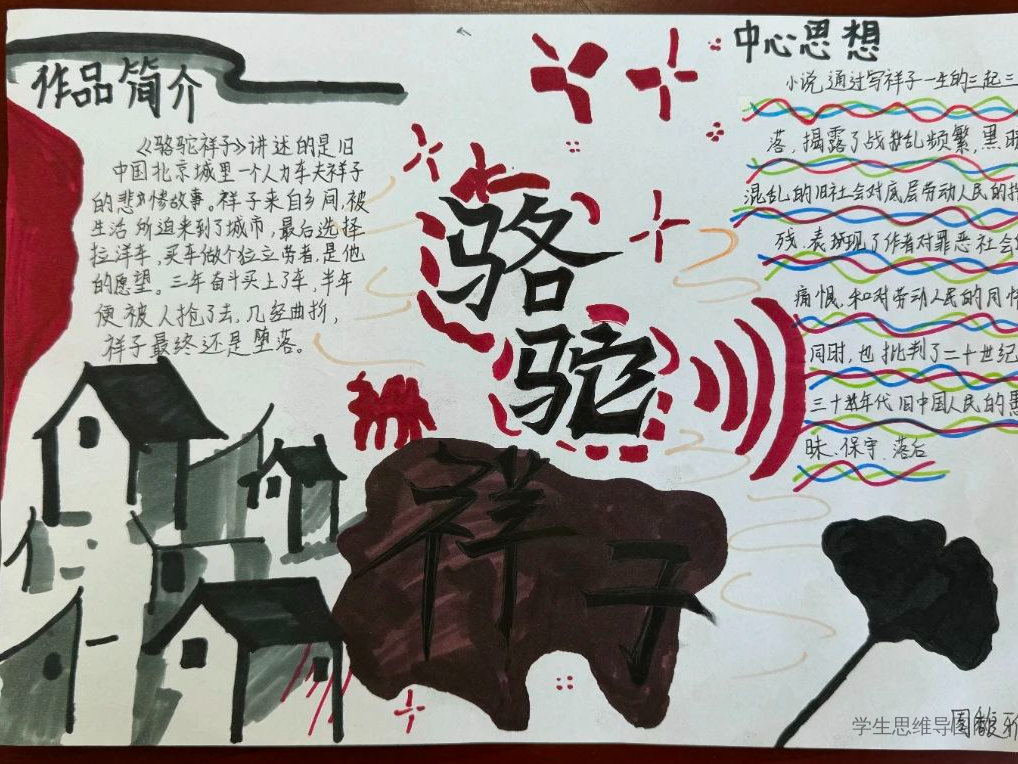 作品简介
《骆驼祥子》讲述的是旧
中国北京城里一个人力车夫祥子
的悲惨故事。祥子来自乡间,被
生活所迫来到了城市,最后选择
拉洋车,买车做个独立劳者,是他
的愿望。三年奋斗买上了车,半年
便被人抢了去,几经曲折,
祥子最终还是堕落。
骆
驼
祥子
中心思想
小说通过写祥子一生的三起三
落,揭露了战乱频繁,黑暗
混乱的旧社会对底层劳动人民的
残,表现了作者对罪恶社会
痛恨,和对劳动人民的同情
同时,也批判了二十世纪
三十年代旧中国人民的愚
昧、保守、落后
学生思维导